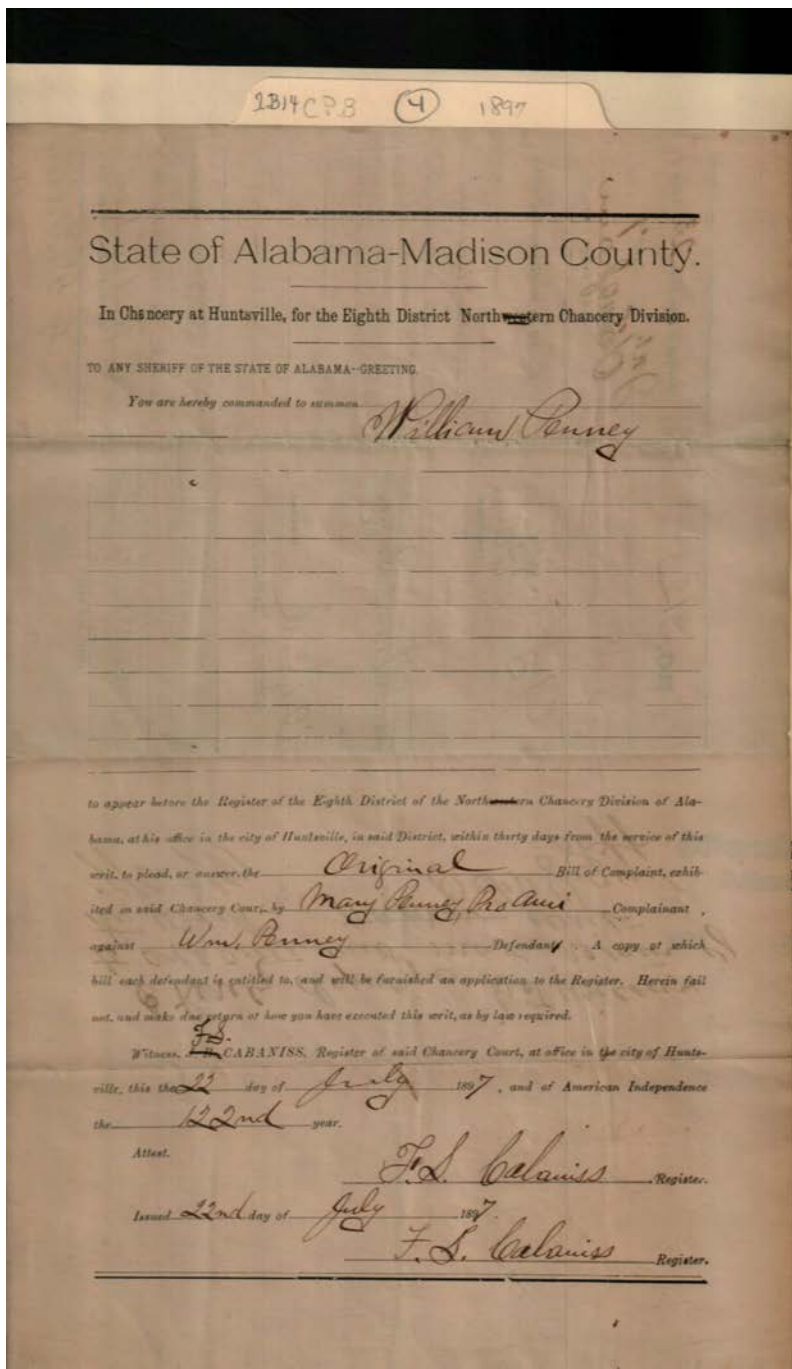 2B14 CPB 4 1897
State of Alabama-Madison County.
In Chancery at Huntsville, for the Eighth District Northwestern Chancery Division.
TO ANY SHERIFF OF THE STATE OF ALABAMA--GREETING.
You are hereby commanded to summon
William Penney
to appear before the Register of the Eighth District of the Northwestern Chancery Division of Ala-
bama, at his office in the city of Huntsville, in said District, within thirty days from the service of this
writ, to plead, or answer, the Original Bill of Complaint, exhib-
ited in said Chancery Court, by Mary Penney, Pro Ami Complainant,
against Wm. Penney Defendant. A copy of which
bill each defendant is entitled to, and will be furnished an application to the Register. Herein fail
not, and make due return of how you have executed this writ, as by law required.
F.S.
Witness, CABANISS, Register of said Chancery Court, at office in the city of Hunts-
ville, this the 22 day of July 1897, and of American Independence
the 122nd year.
Attest.
F. S. Cabaniss Register.
Issued 22nd day of July 1897.
F. S. Cabaniss Register.